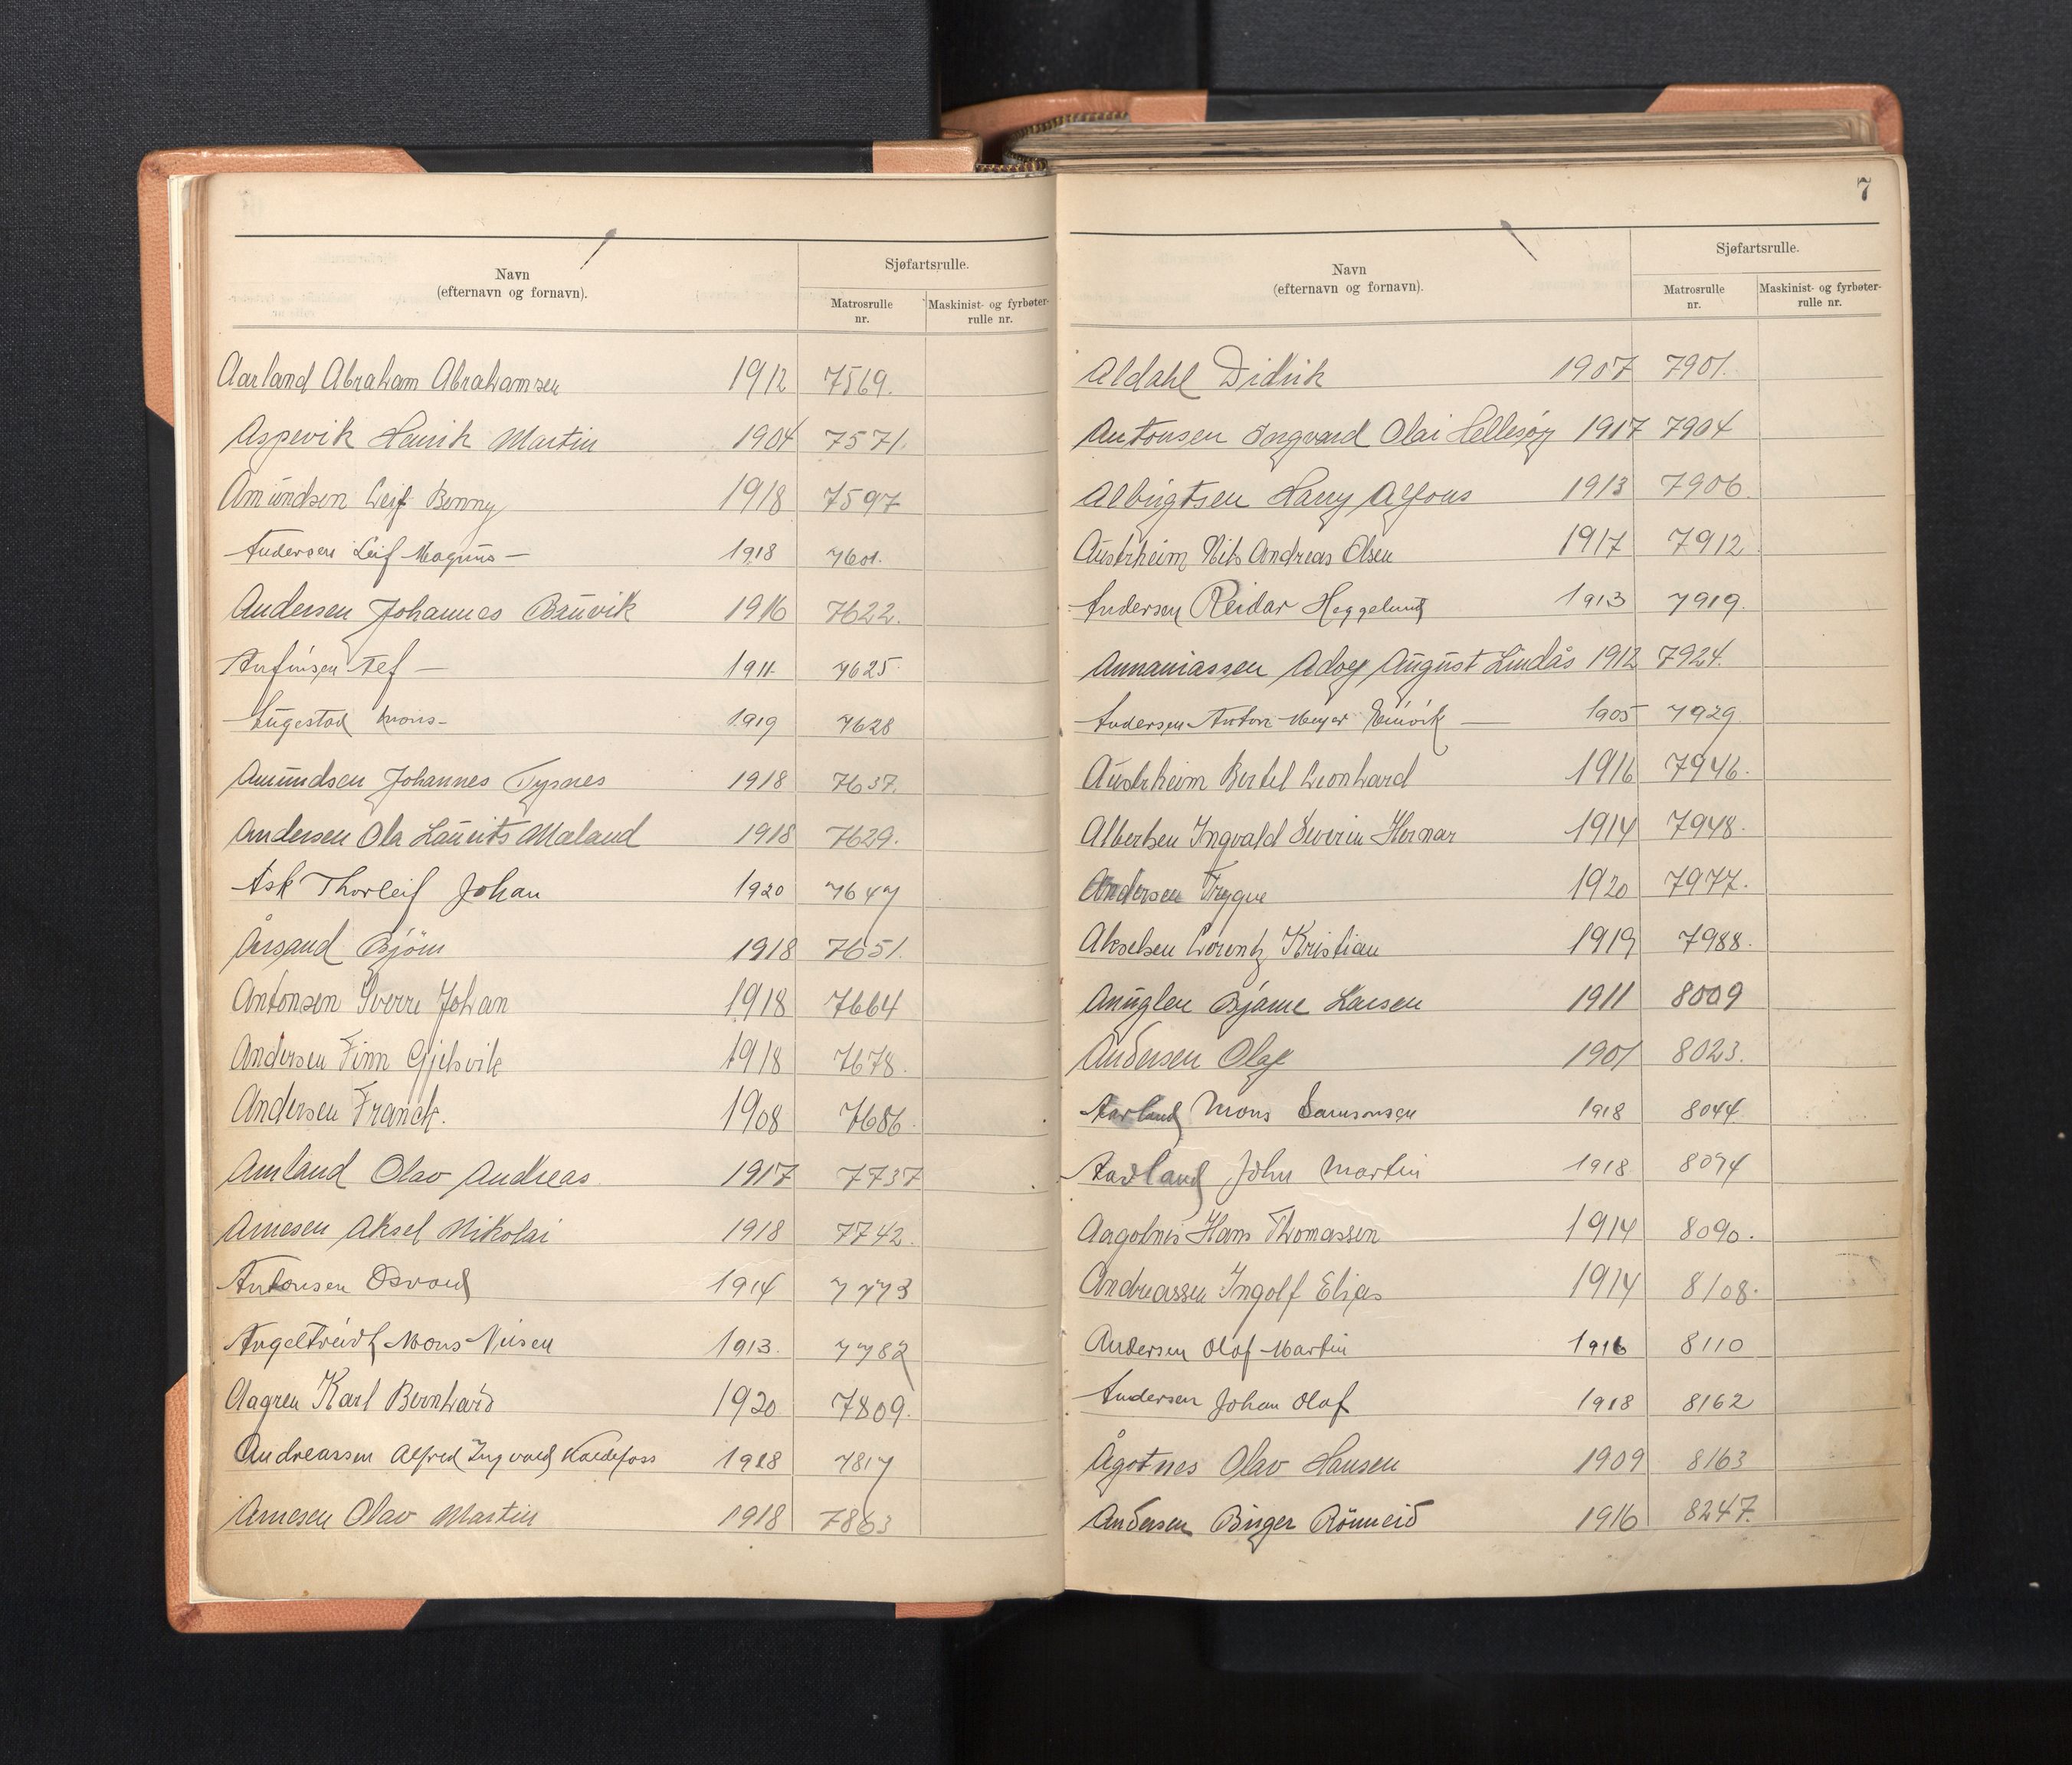 Navn
(efternavn og fornavn).
Sjøfartsrulle.
Matrosrulle
nr.
Maskinist- og fyrbøter-
rulle nr.
Aarland Abraham Abrahamsen 1912 7569.
Aspevik Henrik Martin 1904 7571.
Amundsen Leif Bonny 1918 7597
Andersen Leif Magnus — 1918 7601.
Andersen Johannes Bruvik 1916 7622.
Anfinsen Alf — 1911. 7625.
Mons - 1919 7628
Amundsen Johannes Tysnes 1918 7637.
Andersen Ola Laurits Mæland 1918 7629.
Ask Thorleif Johan 1920 7647
Årsand Bjørn 1918 7651.
Antonsen Sverre Johan 1918 7664
Andersen Finn Gjelsvik 1918 7678.
Andersen Franck. 1908 7686.
Amland Olav Andreas 1917 7737
Arnesen Aksel Nikolai 1918 7742.
Antonsen Osvald 1914 7773
Angeltveidt Mons Nilsen 1913. 7782
Aagren Karl Bernhard 1920 7809.
Andreassen Alfred Ingvald Kaldefoss 1918 7817
Arnesen Olav Martin 1918 7863
7
Navn
(efternavn og fornavn).
Sjøfartsrulle.
Matrosrulle
nr.
Maskinist- og fyrbøter-
rulle nr.
Aldahl Didrik 1907 7901.
Antonsen Ingvard Olai Hellesøy 1917 7904
Albrigtsen Harry Alfons 1913 7906.
Austrheim Nils Andreas Olsen 1917 7912
Andersen Reidar Heggelund 1913 7919.
Annaniassen Adolf August Lindås 1912 7924.
Andersen Anton Meyer 1905 7929
Austrheim Bertel Leonhard 1916 7946.
Albertsen Ingvald Severin Hernar 1914 7948.
Andersen Trygve 1920 7977.
Akselsen Lorentz Kristian 1919 7988.
Anuglen Bjarne Larsen 1911 8009
Andersen Olaf 1901 8023.
Aarland Mons Samsonsen 1918 8044.
Aadland John Martin 1918 8074
Aagotnes Hans Thomassen 1914 8090.
Andreassen Ingolf Elias 1914 8108.
Andersen Olaf Martin 1916 8110
Andersen Johan Olaf 1918 8162
Ågotnes Olav Hansen 1909 8163
Andersen Birger Rönneid 1916 8247.